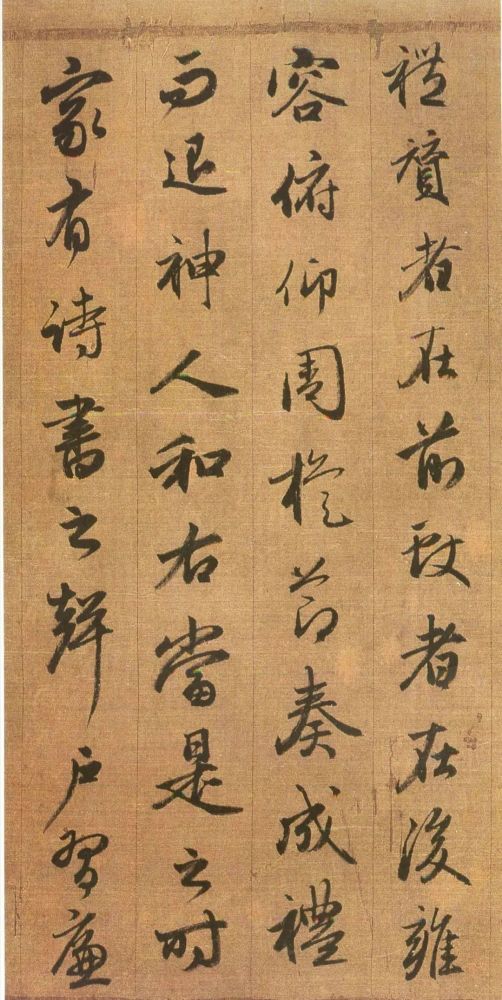 禮贊者在前致者在後雍
容俯仰周旋節奏成禮
而退神人和右當是之时
家有詩書之聲戶習廉